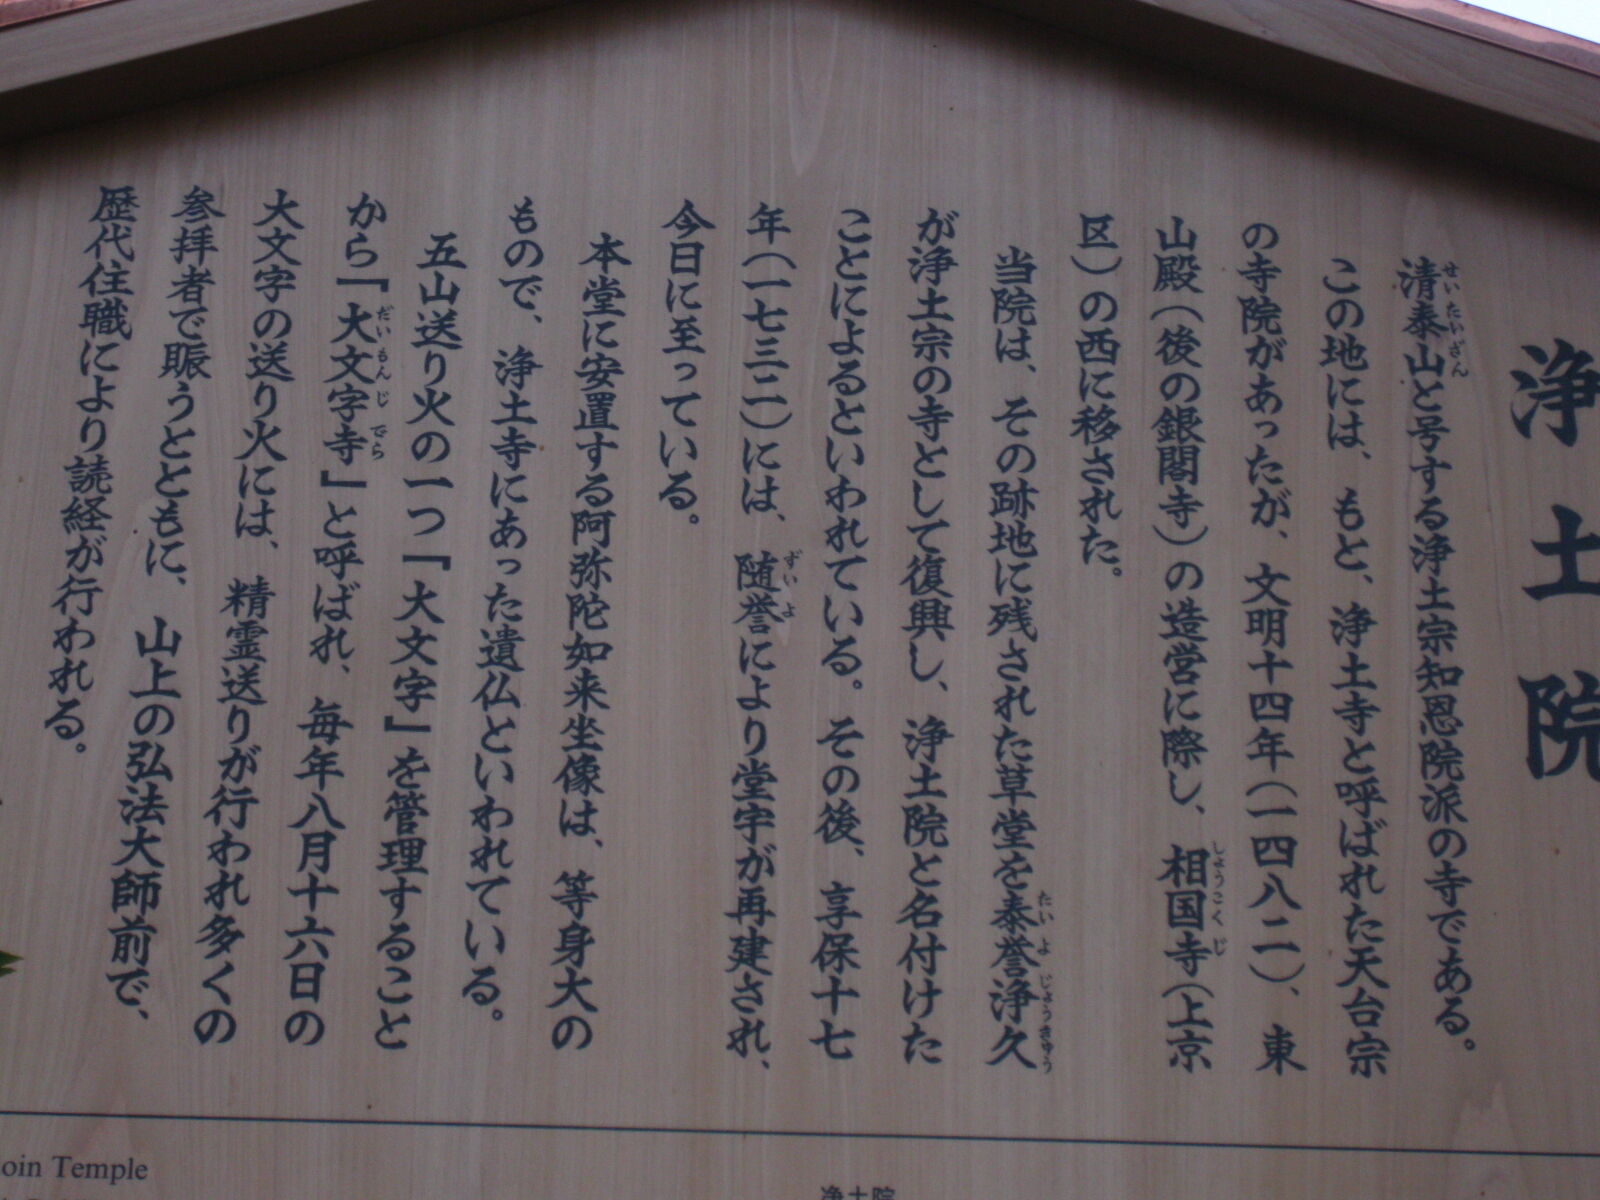 浄土院
清泰山と号する浄土宗知恩院派の寺である。
この地には、もと、浄土寺と呼ばれた天台宗
の寺院があったが、文明十四年(一四八二)、東
山殿(後の銀閣寺)の造営に際し、相国寺(上京
区)の西に移された。
当院は、その跡地に残された草堂を泰誉浄久
が浄土宗の寺として復興し、浄土院と名付けた
ことによるといわれている。その後、享保十七
年(一七三二)には、随誉により堂宇が再建され、
今日に至っている。
本堂に安置する阿弥陀如来坐像は、等身大の
もので、浄土寺にあった遺仏といわれている。
五山送り火の一つ『大文字』を管理すること
から『大文字寺』と呼ばれ、毎年八月十六日の
大文字の送り火には、精霊送りが行われ多くの
参拝者で賑うとともに、山上の弘法大師前で、
歴代住職により読経が行われる。
oin Temple
浄土院